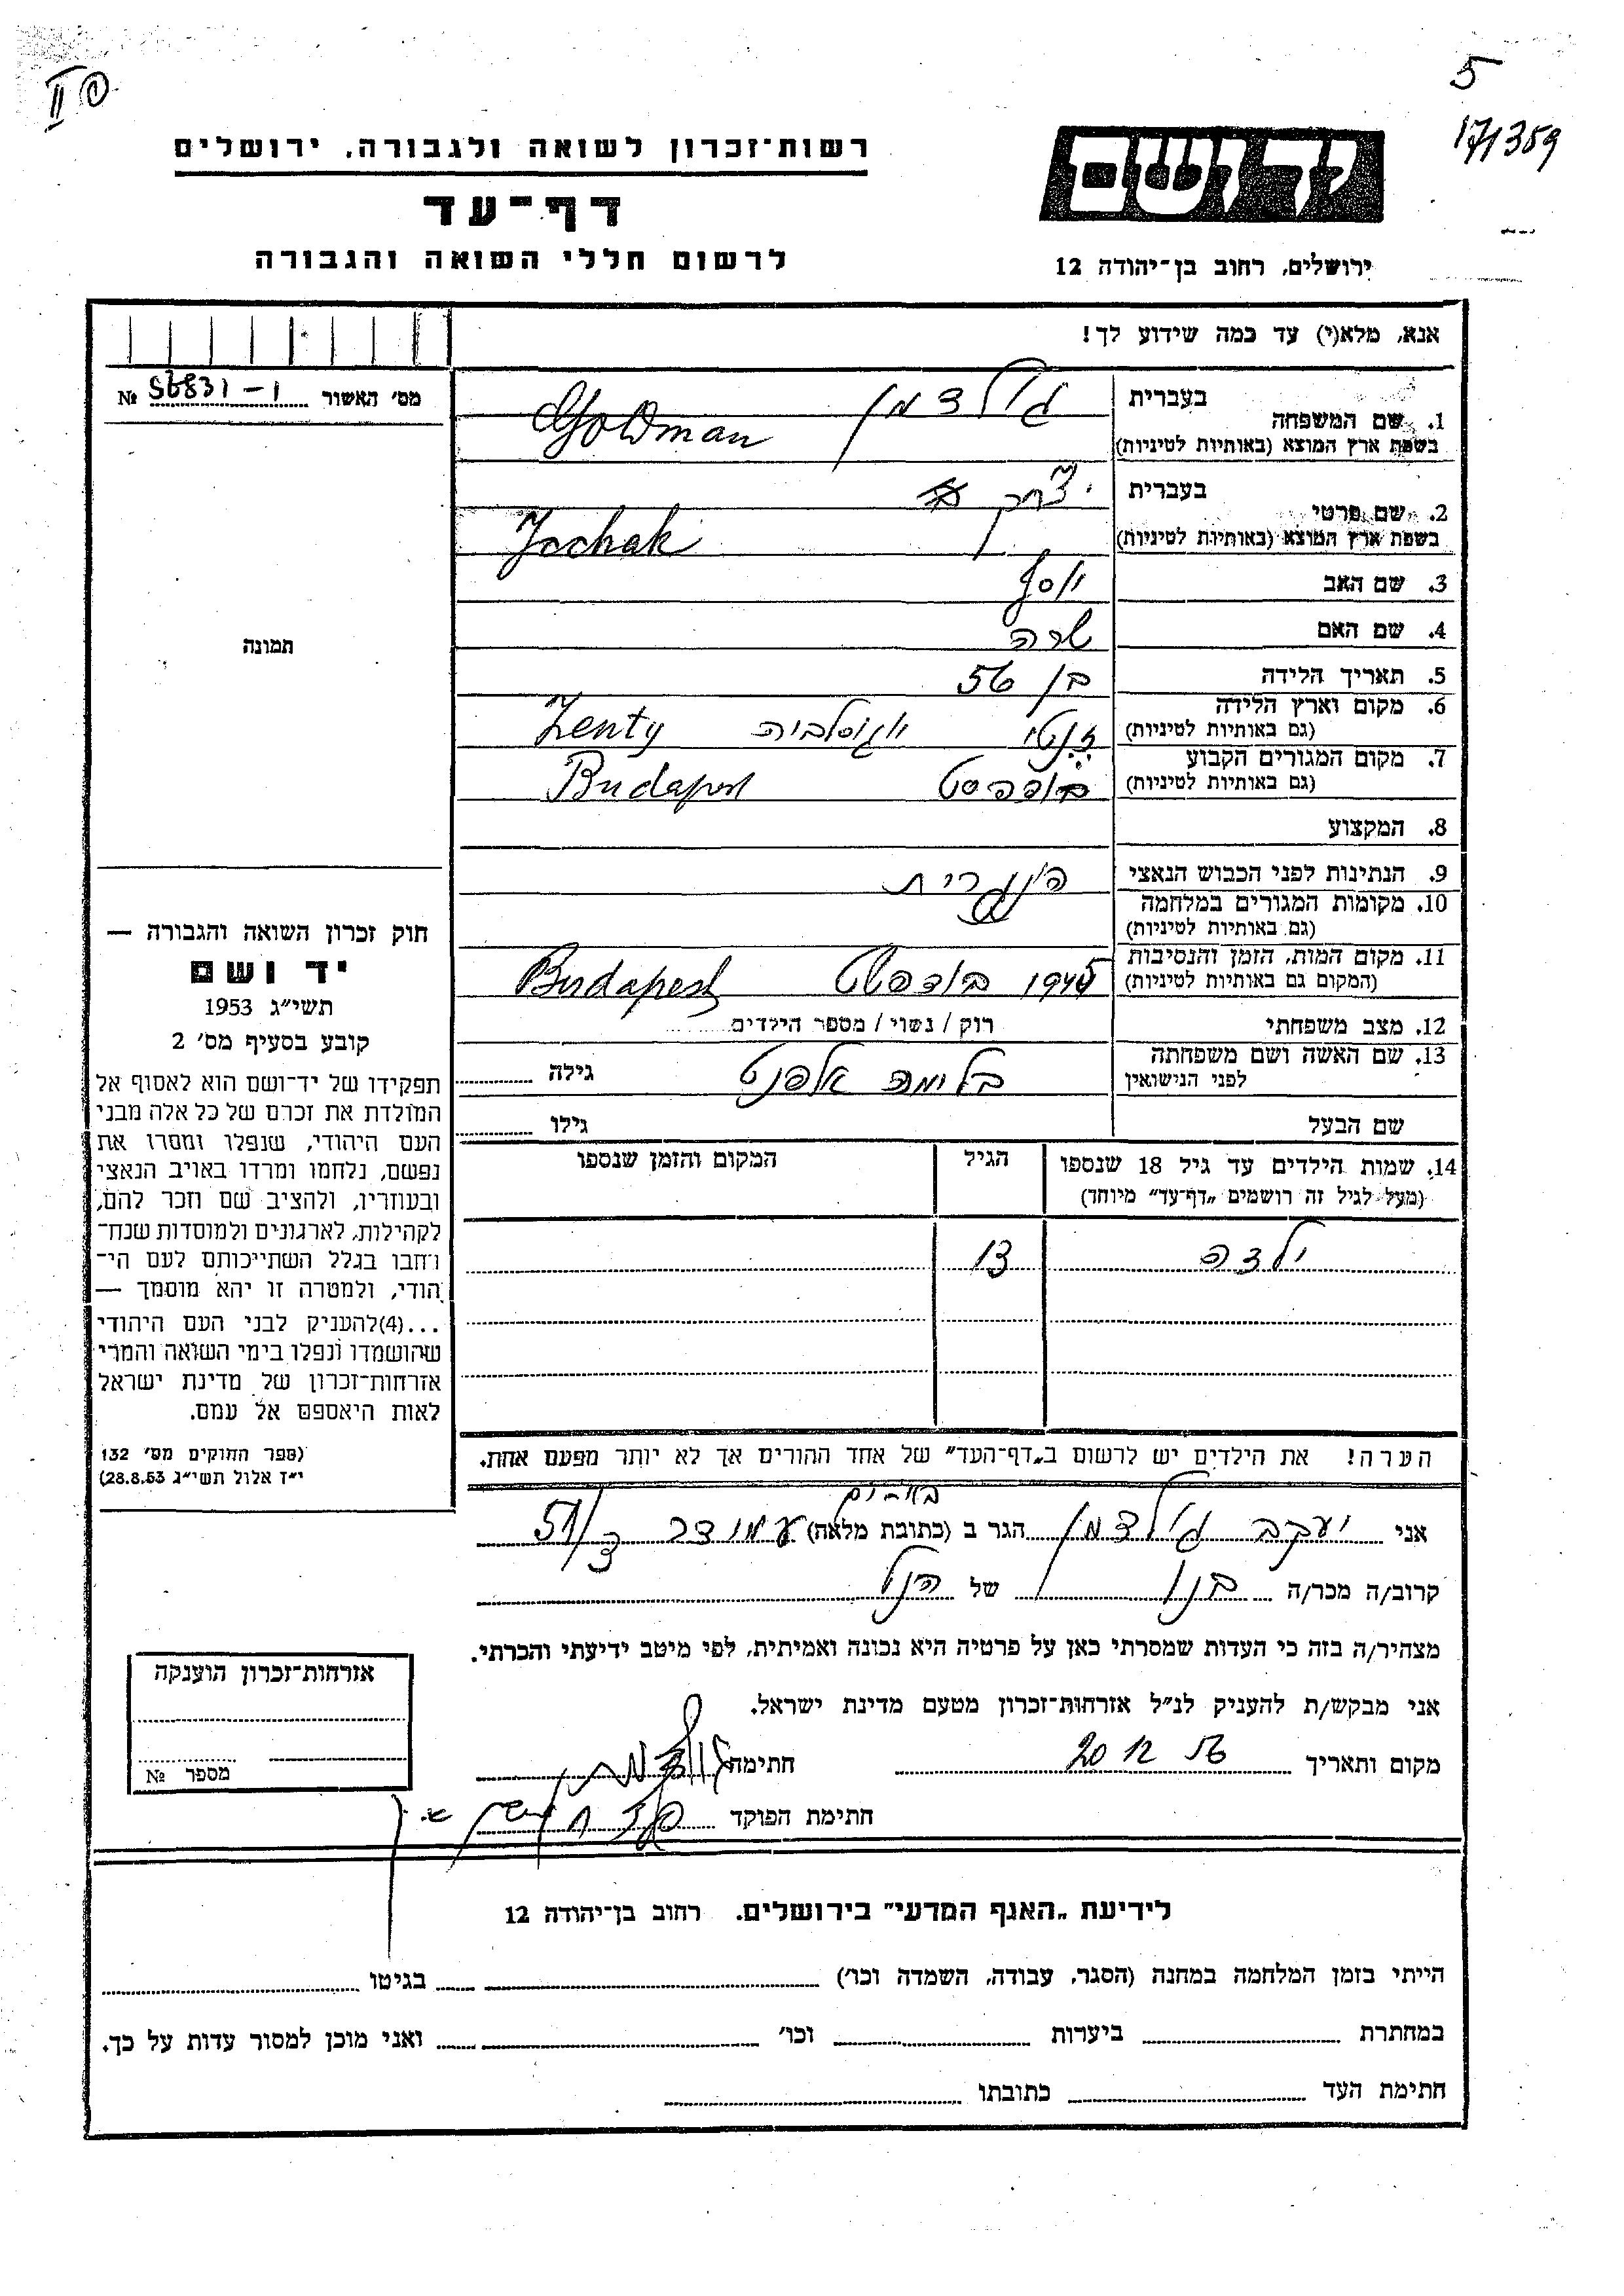 5
171389
II
רשות־זכרון לשואה ולגבורה, ירושלים
דף־עד
לרשום חללי השואה והגבורה
יד ושם
ירושלים, רחוב בן־יהודה 12
אנא, מלא(י) עד כמה שידוע לך!
מס׳ האשור 56831-1 №
תמונה
1. שם המשפחה
בעברית גולדמן
בשפת ארץ המוצא (באותיות לטיניות) Goldman
2. שם פרטי
בעברית יצחק
בשפת ארץ המוצא (באותיות לטיניות) Jzchak
3. שם האב יוסף
4. שם האם שרה
5. תאריך הלידה בן 56
6. מקום וארץ הלידה
(גם באותיות לטיניות) זנטי יוגוסלביה Zenty
7. מקום המגורים הקבוע
(גם באותיות לטיניות) בודפסט Budapest
8. המקצוע
9. הנתינות לפני הכבוש הנאצי הונגרית
10. מקומות המגורים במלחמה
(גם באותיות לטיניות)
11. מקום המות, הזמן והנסיבות
(המקום גם באותיות לטיניות) 1945 בודפשט Budapest
12. מצב משפחתי רוק / נשוי / מספר הילדים
13. שם האשה ושם משפחתה
לפני הנישואין בלימה גילה
שם הבעל גילו
14. שמות הילדים עד גיל 18 שנספו
(מעל לגיל זה רושמים „דף־עד״ מיוחד)
הגיל
המקום והזמן שנספו
ילדה 13
הערה! את הילדים יש לרשום ב„דף־העד״ של אחד ההורים אך לא יותר מפעם אחת.
אני יעקב גולדמן הגר ב (כתובת מלאה) עמידר ד/51
קרוב/ה מכר/ה בנו של הנ״ל
מצהיר/ה בזה כי העדות שמסרתי כאן על פרטיה היא נכונה ואמיתית, לפי מיטב ידיעתי והכרתי.
אני מבקש/ת להעניק לנ״ל אזרחות־זכרון מטעם מדינת ישראל.
מקום ותאריך 20 12 56 חתימה
חתימת הפוקד
חוק זכרון השואה והגבורה —
יד ושם
תשי״ג 1953
קובע בסעיף מס׳ 2
תפקידו של יד־ושם הוא לאסוף אל
המולדת את זכרם של כל אלה מבני
העם היהודי, שנפלו ומסרו את
נפשם, נלחמו ומרדו באויב הנאצי
ובעוזריו, ולהציב שם וזכר להם,
לקהילות, לארגונים ולמוסדות שנח־
רחבו בגלל השתייכותם לעם הי־
הודי, ולמטרה זו יהא מוסמך —
...(4)להעניק לבני העם היהודי
שהושמדו ונפלו בימי השואה והמרי
אזרחות־זכרון של מדינת ישראל
לאות היאספם אל עמם.
(ספר החוקים מס׳ 132
י״ז אלול תשי״ג 28.8.53)
אזרחות־זכרון הוענקה
מספר №
לידיעת „האגף המדעי״ בירושלים. רחוב בן־יהודה 12
הייתי בזמן המלחמה במחנה (הסגר, עבודה, השמדה וכו׳) בגיטו
במחתרת ביערות וכו׳ ואני מוכן למסור עדות על כך.
חתימת העד כתובתו